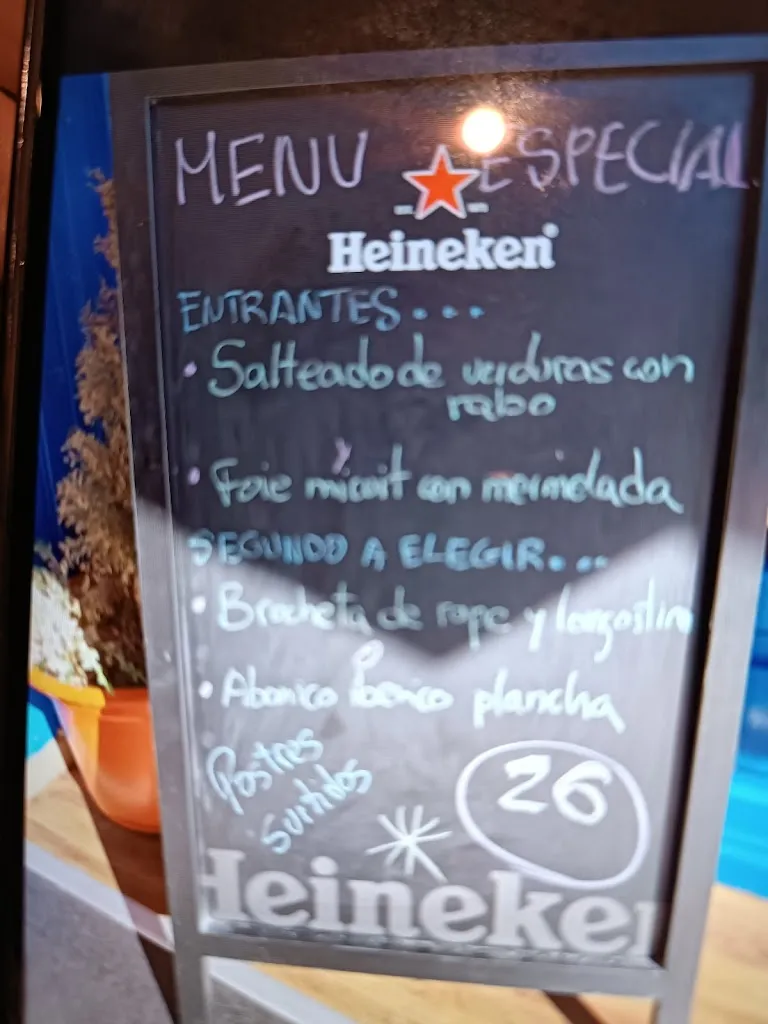 MENU ESPECIAL
Heineken
ENTRANTES...
• Salteado de verduras con
rabo
• Foie micuit con mermelada
SEGUNDO A ELEGIR...
• Brocheta de rape y langostino
• Abanico ibérico plancha
Postres
surtidos
26
Heineken